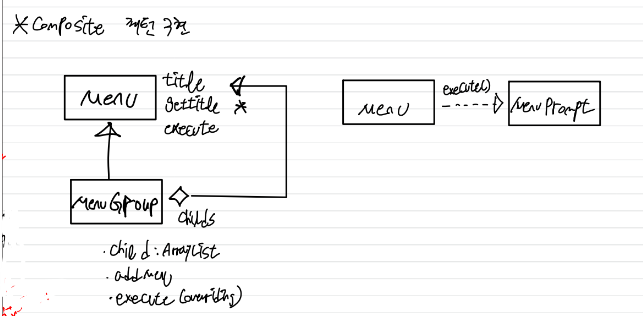 * Composite 패턴 구현
Menu
title
getTitle *
execute
Menu
execute()
Menu Prompt
MenuGroup
childs
· child : ArrayList
· addMenu
· execute (overriding)